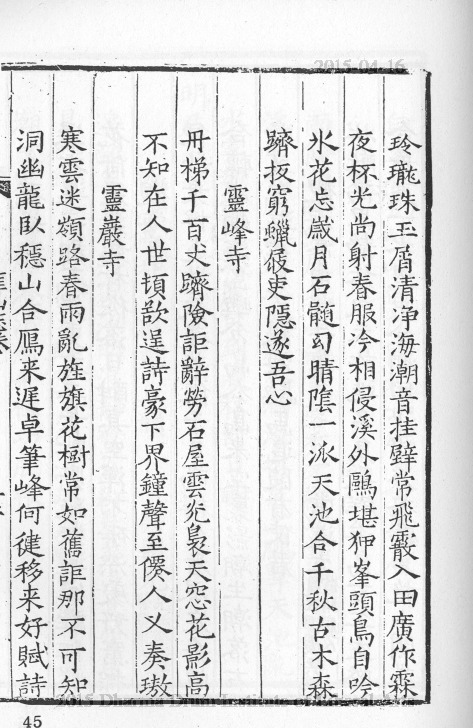 2015-04-16
玲瓏珠玉屑清净海潮音挂壁常飛霰入田廣作霖
夜杯光尚射春服冷相侵溪外鷗堪狎峯頭鳥自吟
氷花忘歲月石髄幻晴隂一派天池合千秋古木森
躋扳窮蠟屐吏隱遂吾心
靈峰寺
冊梯千百丈躋險詎辭勞石屋雲光裊天窓花影高
不知在人世頓欲逞詩豪下界鐘聲至僊人又奏璈
靈巖寺
寒雲迷嶺路春雨亂旌旗花樹常如舊詎那不可知
洞幽龍臥穩山合鴈来遲卓筆峰何健移来好賦詩
45